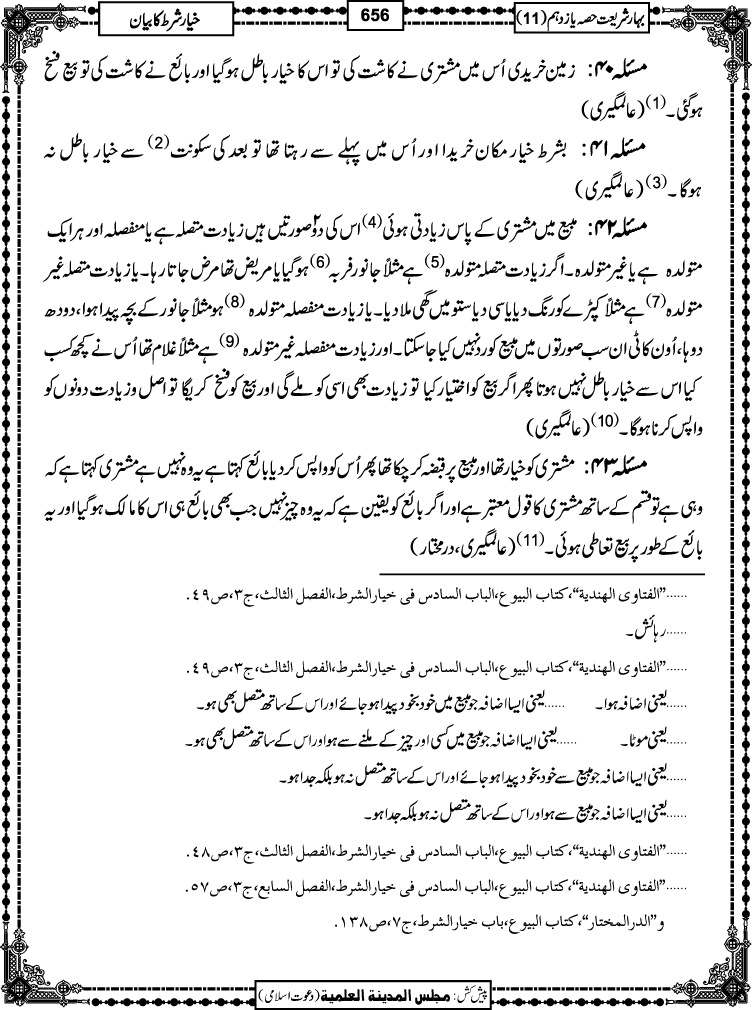 بہارِ شریعت حصہ یازدہم (11)
656
خیارِ شرط کا بیان
مسئلہ ۴۰: زمین خریدی اُس میں مشتری نے کاشت کی تو اس کا خیار باطل ہوگیا اور بائع نے کاشت کی تو بیع فسخ
ہوگئی۔ (1) (عالمگیری)
مسئلہ ۴۱: بشرط خیار مکان خریدا اور اُس میں پہلے سے رہتا تھا تو بعد کی سکونت (2) سے خیار باطل نہ
ہوگا۔ (3) (عالمگیری)
مسئلہ ۴۲: مبیع میں مشتری کے پاس زیادتی ہوئی (4) اس کی دو۲ صورتیں ہیں زیادت متصلہ ہے یا منفصلہ اور ہر ایک
متولدہ ہے یا غیر متولدہ۔ اگر زیادت متصلہ متولدہ (5) ہے مثلاً جانور فربہ (6) ہوگیا یا مریض تھا مرض جاتا رہا۔ یا زیادت متصلہ غیر
متولدہ (7) ہے مثلاً کپڑے کو رنگ دیا یا سی دیا ستو میں گھی ملا دیا۔ یا زیادت منفصلہ متولدہ (8) ہو مثلاً جانور کے بچہ پیدا ہوا، دودھ
دوہا، اُون کاٹی ان سب صورتوں میں مبیع کو رد نہیں کیا جاسکتا۔ اور زیادت منفصلہ غیر متولدہ (9) ہے مثلاً غلام تھا اُس نے کچھ کسب
کیا اس سے خیار باطل نہیں ہوتا پھر اگر بیع کو اختیار کیا تو زیادت بھی اسی کو ملے گی اور بیع کو فسخ کریگا تو اصل و زیادت دونوں کو
واپس کرنا ہوگا۔ (10) (عالمگیری)
مسئلہ ۴۳: مشتری کو خیار تھا اور مبیع پر قبضہ کر چکا تھا پھر اُس کو واپس کر دیا بائع کہتا ہے یہ وہ نہیں ہے مشتری کہتا ہے کہ
وہی ہے تو قسم کے ساتھ مشتری کا قول معتبر ہے اور اگر بائع کو یقین ہے کہ یہ وہ چیز نہیں جب بھی بائع ہی اس کا مالک ہوگیا اور یہ
بائع کے طور پر بیع تعاطی ہوئی۔ (11) (عالمگیری، درمختار)
......”الفتاوی الھندیة“، کتاب البیوع، الباب السادس فی خیار الشرط، الفصل الثالث، ج۳، ص۴۹.
......رہائش۔
......”الفتاوی الھندیة“، کتاب البیوع، الباب السادس فی خیار الشرط، الفصل الثالث، ج۳، ص۴۹.
......یعنی اضافہ ہوا۔ ......یعنی ایسا اضافہ جو مبیع میں خود بخود پیدا ہو جائے اور اس کے ساتھ متصل بھی ہو۔
......یعنی موٹا۔ ......یعنی ایسا اضافہ جو مبیع میں کسی اور چیز کے ملنے سے ہو اور اس کے ساتھ متصل بھی ہو۔
......یعنی ایسا اضافہ جو مبیع سے خود بخود پیدا ہو جائے اور اس کے ساتھ متصل نہ ہو بلکہ جدا ہو۔
......یعنی ایسا اضافہ جو مبیع سے ہو اور اس کے ساتھ متصل نہ ہو بلکہ جدا ہو۔
......”الفتاوی الھندیة“، کتاب البیوع، الباب السادس فی خیار الشرط، الفصل الثالث، ج۳، ص۴۸.
......”الفتاوی الھندیة“، کتاب البیوع، الباب السادس فی خیار الشرط، الفصل السابع، ج۳، ص۵۷.
و”الدرالمختار“، کتاب البیوع، باب خیار الشرط، ج۷، ص۱۳۸.
پیش کش: مجلس المدینة العلمیة (دعوت اسلامی)